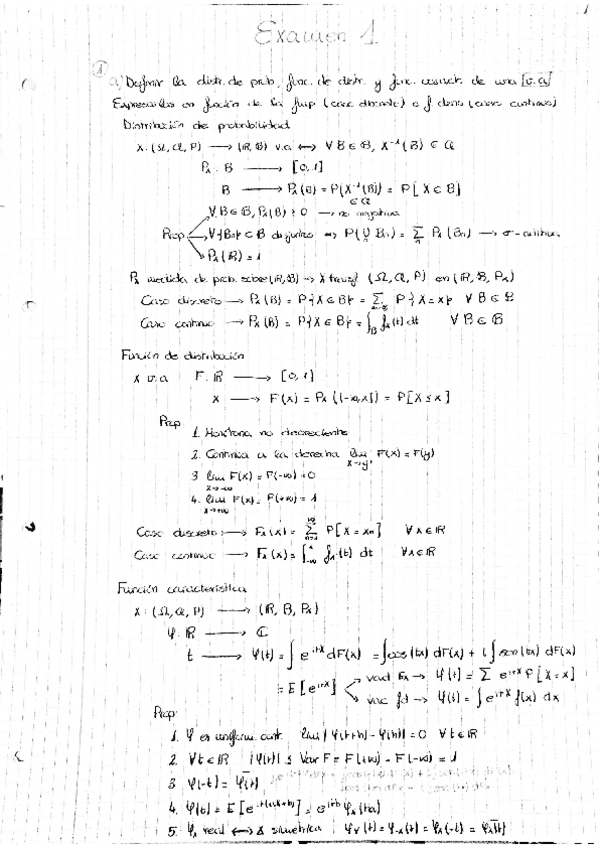 Examen 1
1
a) Definir la distr. de prob, func. de distr. y func. caract. de una v.a
Expresarlas en función de la fmp (caso discreto) o f dens (caso continuo)
Distribución de probabilidad
X: (Ω, 𝒜, P) → (ℝ, B) v.a ↔ ∀B ∈ B, X⁻¹(B) ∈ 𝒜
Pₓ: B → [0,1]
B → Pₓ(B) = P(X⁻¹(B)) = P[X ∈ B]
∈ 𝒜
∀B ∈ B, Pₓ(B) ≥ 0 → no negativa
Prop ∀{Bn} ⊂ B disjuntos ⇒ P(∪ Bn) = Σ Pₓ(Bn) → σ-aditiva
Pₓ(ℝ) = 1
Pₓ medida de prob. sobre (ℝ, B) → X transf (Ω, 𝒜, P) en (ℝ, B, Pₓ)
Caso discreto → Pₓ(B) = P{X ∈ B} = Σ P{X = x} ∀B ∈ B
Caso continuo → Pₓ(B) = P{X ∈ B} = ∫_B fₓ(t) dt ∀B ∈ B
Función de distribución
X v.a F: ℝ → [0,1]
x → F(x) = Pₓ((-∞, x]) = P[X ≤ x]
Prop
1. Monótona no decreciente
2. Continua a la derecha lim F(x) = F(y)
3. lim x→-∞ F(x) = F(-∞) = 0
4. lim x→+∞ F(x) = F(+∞) = 1
Caso discreto → Fₓ(x) = Σ P[X = xn] ∀x ∈ ℝ
Caso continuo → Fₓ(x) = ∫_-∞^x fₓ(t) dt ∀x ∈ ℝ
Función característica
X: (Ω, 𝒜, P) → (ℝ, B, Pₓ)
φ: ℝ → ℂ
t → φ(t) = ∫ e^{itx} dF(x) = ∫ cos(tx) dF(x) + i ∫ sen(tx) dF(x)
= E[e^{itX}] → φ(t) = Σ e^{itx} P[X = x]
vac fd → φ(t) = ∫ e^{itx} f(x) dx
Prop:
1. φ es uniform. cont. lim |φ(t+h) - φ(h)| = 0 ∀t ∈ ℝ
2. ∀t ∈ ℝ |φ(t)| ≤ Var F = F(+∞) - F(-∞) = 1
3. φ(-t) = \overline{φ(t)}
4. φ(t) = E[e^{it(aX+b)}] = e^{itb} φₓ(ta)
5. φₓ real ↔ X simétrica φₓ(t) = φ₋ₓ(t) = φₓ(-t) = \overline{φₓ(t)}